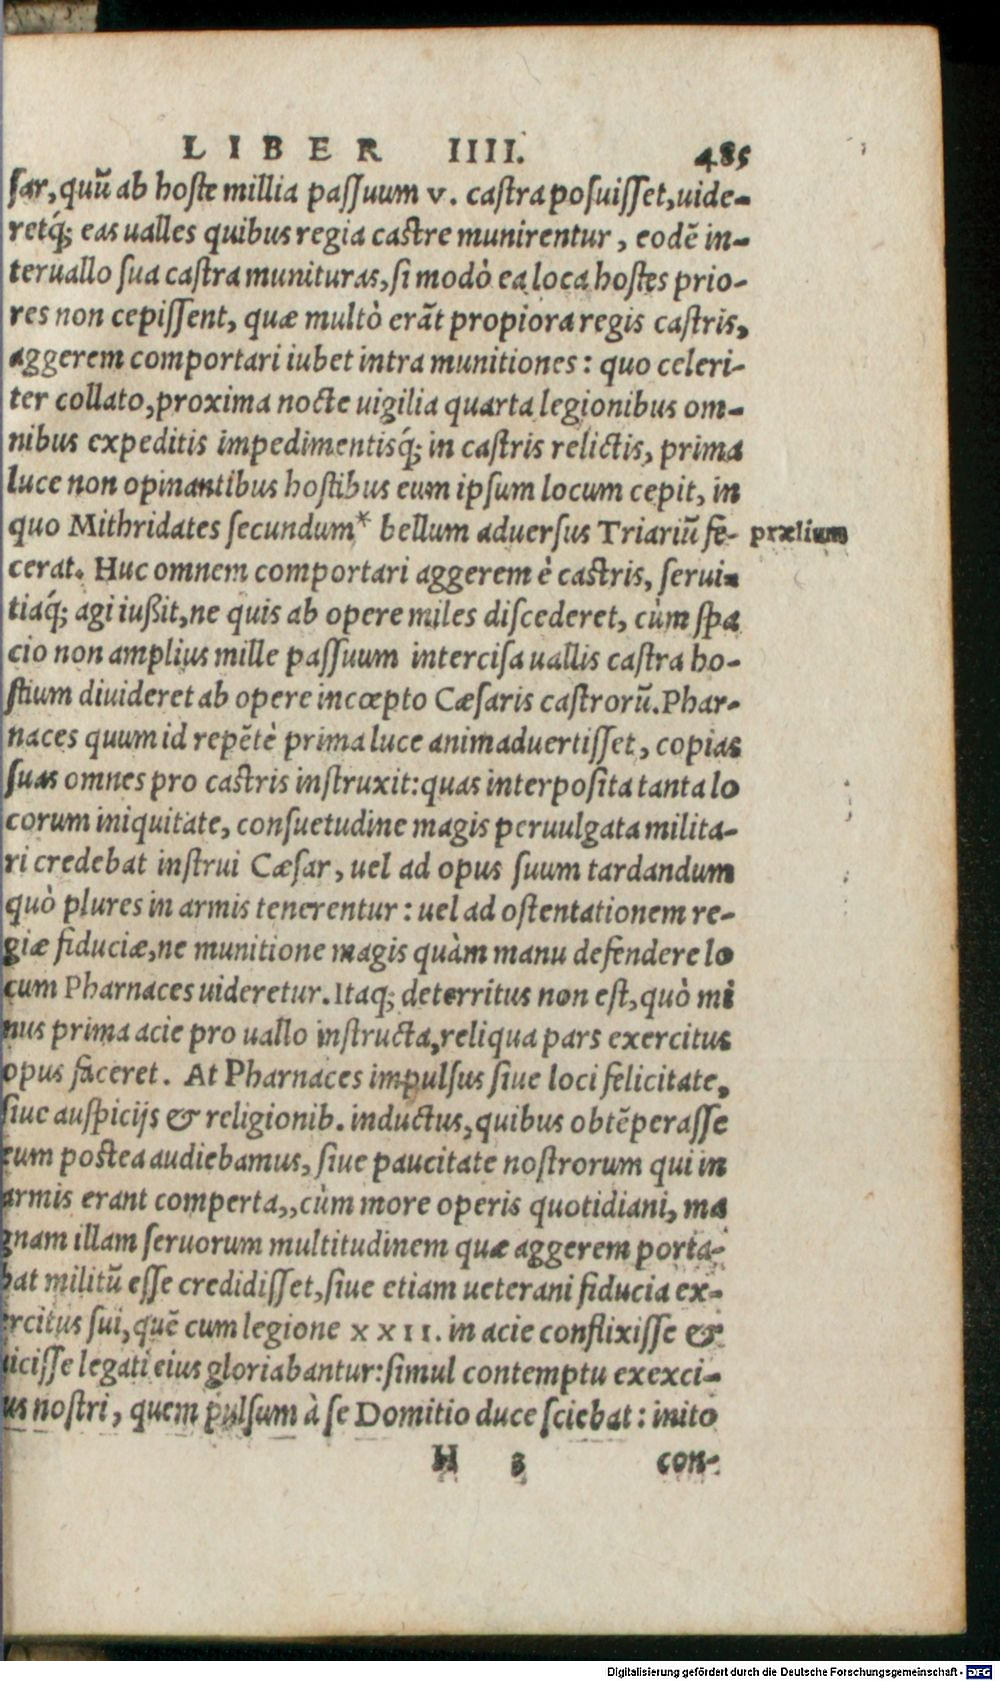 LIBER IIII. 485
ſar, quũ ab hoſte millia paſſuum v. caſtra poſuiſſet, uide-
retq́; eas ualles quibus regia caſtre munirentur, eodẽ in-
teruallo ſua caſtra munituras, ſi modò ea loca hoſtes prio-
res non cepiſſent, quæ multò erãt propiora regis caſtris,
aggerem comportari iubet intra munitiones: quo celeri-
ter collato, proxima nocte uigilia quarta legionibus om-
nibus expeditis impedimentisq́; in caſtris relictis, prima
luce non opinantibus hoſtibus eum ipſum locum cepit, in
quo Mithridates ſecundum* bellum aduerſus Triariũ fe- prælium
cerat. Huc omnem comportari aggerem è caſtris, ſerui-
tiaq́; agi iußit, ne quis ab opere miles diſcederet, cùm ſpa
cio non amplius mille paſſuum interciſa uallis caſtra ho-
ſtium diuideret ab opere incœpto Cæſaris caſtrorũ. Phar-
naces quum id repẽtè prima luce animaduertiſſet, copias
ſuas omnes pro caſtris inſtruxit: quas interpoſita tanta lo
corum iniquitate, conſuetudine magis peruulgata milita-
ri credebat inſtrui Cæſar, uel ad opus ſuum tardandum
quò plures in armis tenerentur: uel ad oſtentationem re-
giæ fiduciæ, ne munitione magis quàm manu defendere lo
cum Pharnaces uideretur. Itaq; deterritus non eſt, quò mi
nus prima acie pro uallo inſtructa, reliqua pars exercitus
opus faceret. At Pharnaces impulſus ſiue loci felicitate,
ſiue auſpicijs & religionib. inductus, quibus obtẽperaſſe
eum poſtea audiebamus, ſiue paucitate noſtrorum qui in
armis erant comperta,, cùm more operis quotidiani, ma
gnam illam ſeruorum multitudinem quæ aggerem porta-
bat militũ eſſe credidiſſet, ſiue etiam ueterani fiducia ex-
ercitus ſui, quẽ cum legione XXII. in acie conflixiſſe &
uiciſſe legati eius gloriabantur: ſimul contemptu exexci-
us noſtri, quem pulſum à ſe Domitio duce ſciebat: inito
H 3 con-
Digitalisierung gefördert durch die Deutsche Forschungsgemeinschaft - DFG